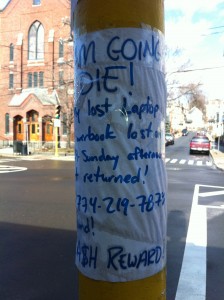 'M GOING
DIE!
Y lost laptop
werbook lost on
Sunday afternoo
t returned!
734-219-787
rd!
A$H REWARD!